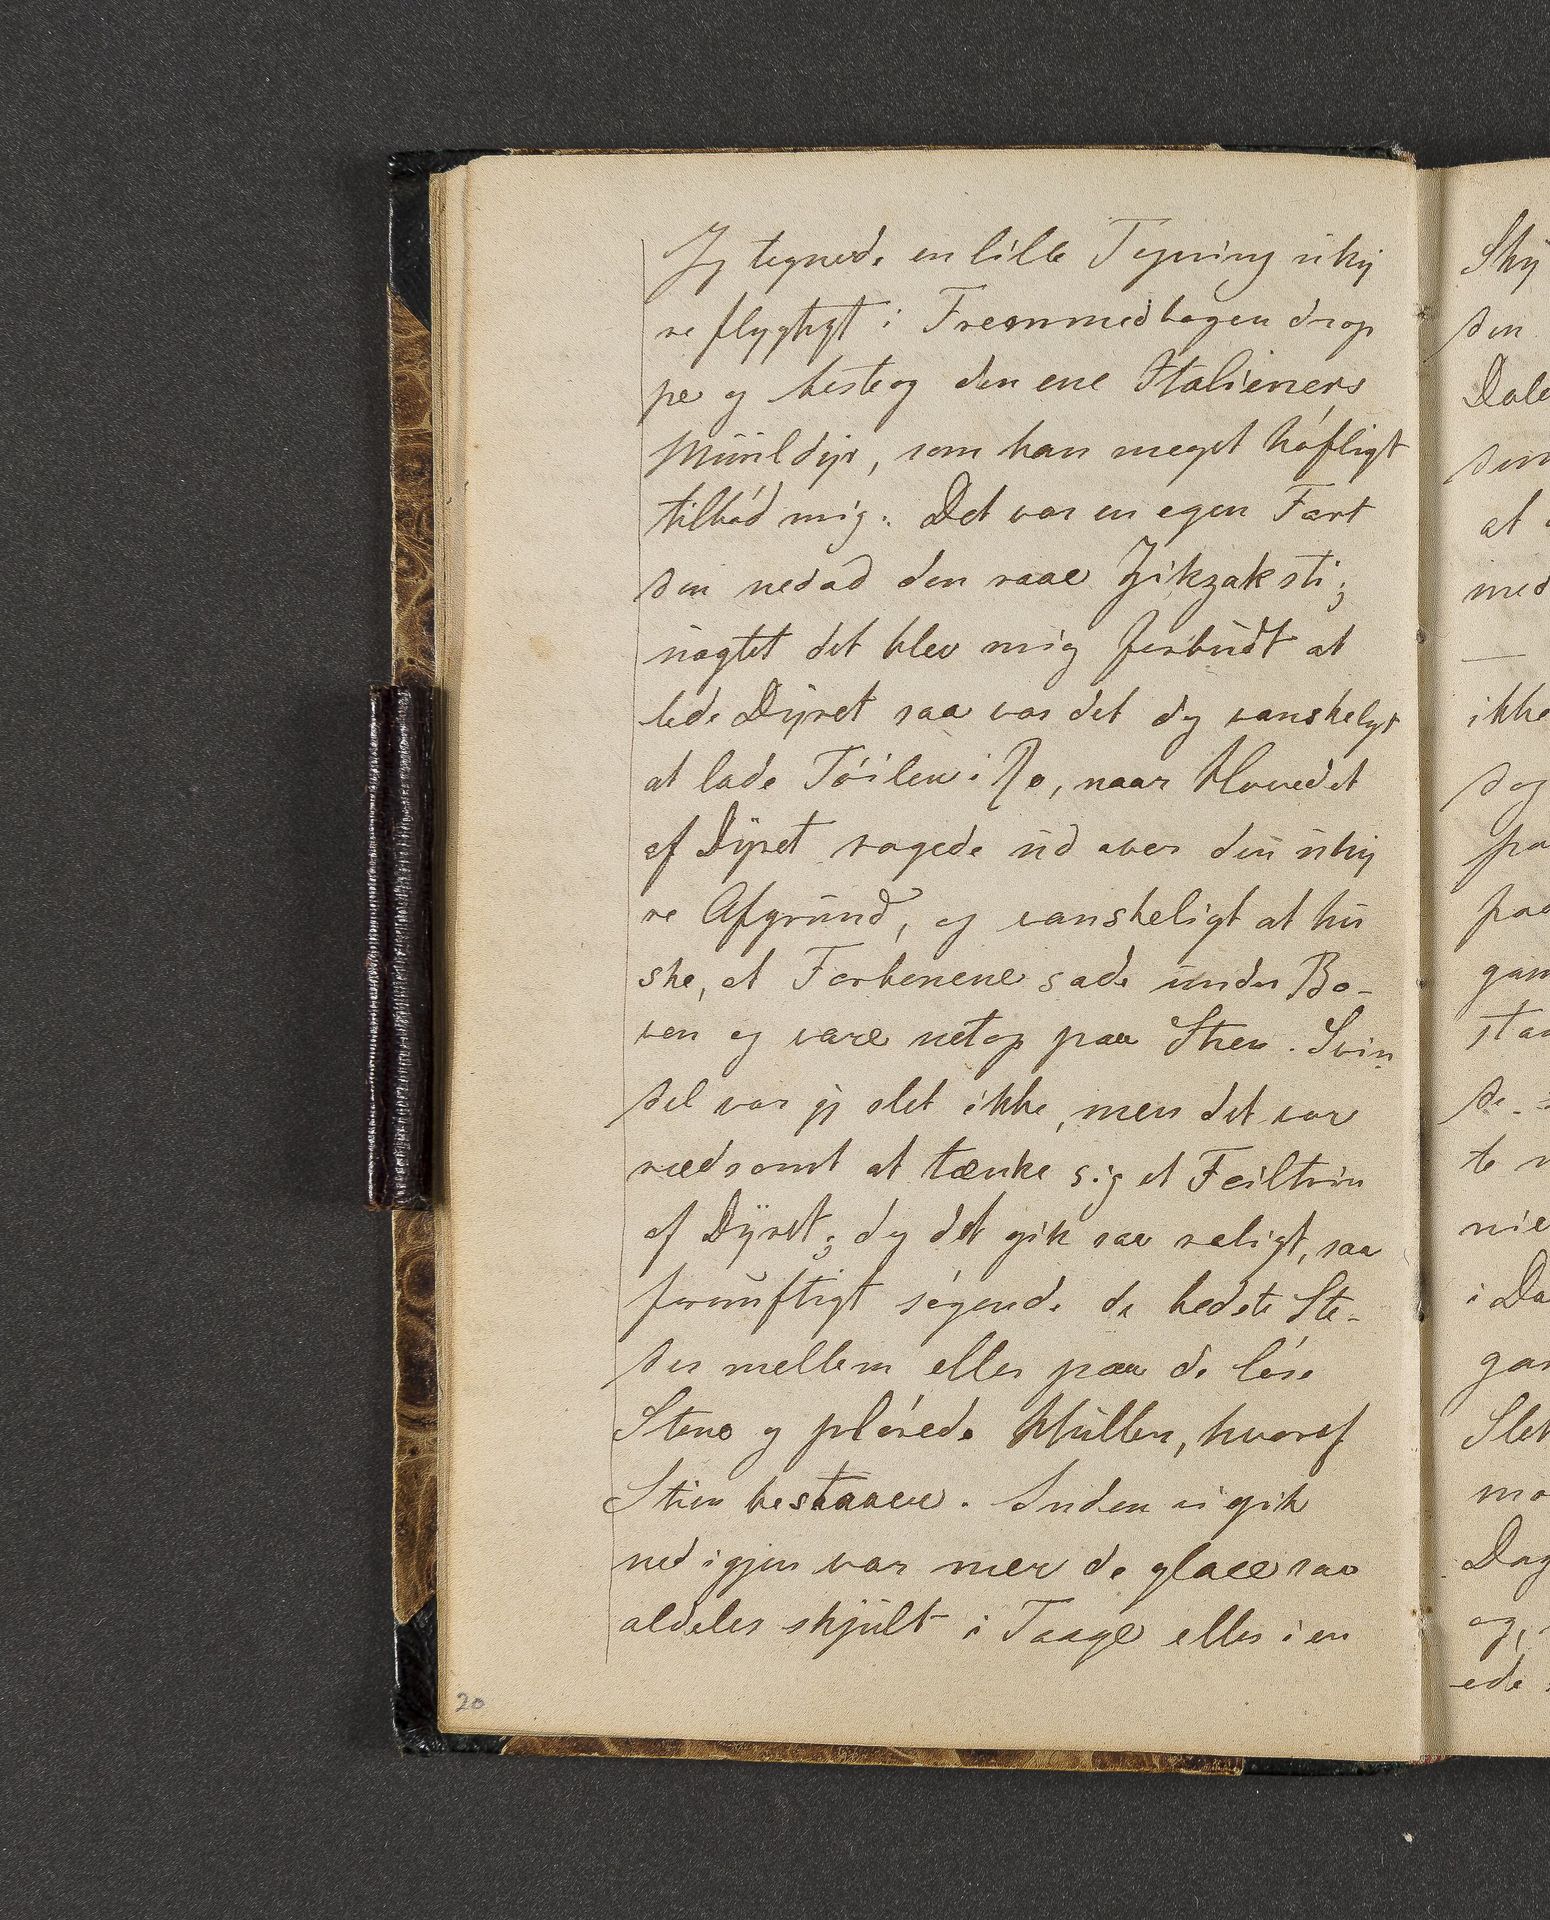 Jeg tegnede en lille Tegning uhy
re flygtigt i Fremmedbogen drop
pe og besteg den ene Italieners
Muuldyr, som han meget höfligt
tilböd mig. Det var en egen Fart
den nedad den raae Zikzaksti;
uagtet det blev mig forbudt at
lede Dyret saa var det dog vanskeligt
at lade Töilen i Ro, naar Hovedet
af Dyret ragede ud over den uhy
re Afgrund, og vanskeligt at hu
ske, at Forbenene sade under Bo-
ven og vare netop paa Stien. Svim
del var jeg slet ikke, men det var
rædsomt at tænke sig et Feiltrin
af Dyret; dog det gik saa roligt, saa
fornuftigt sögende de bedste Ste-
der mellem eller paa de löse
Stene og plörede Huller, hvoraf
Stien bestaaer. Inden vi gik
ned igjen var mer de glace saa
aldeles skjult i Taage eller i en
20
Sky
den
Dale
som
at
med
ikke
dog
paa
gan
stan
de
te
nie
i Da
gan
Slet
mo
Dag
og,
ede